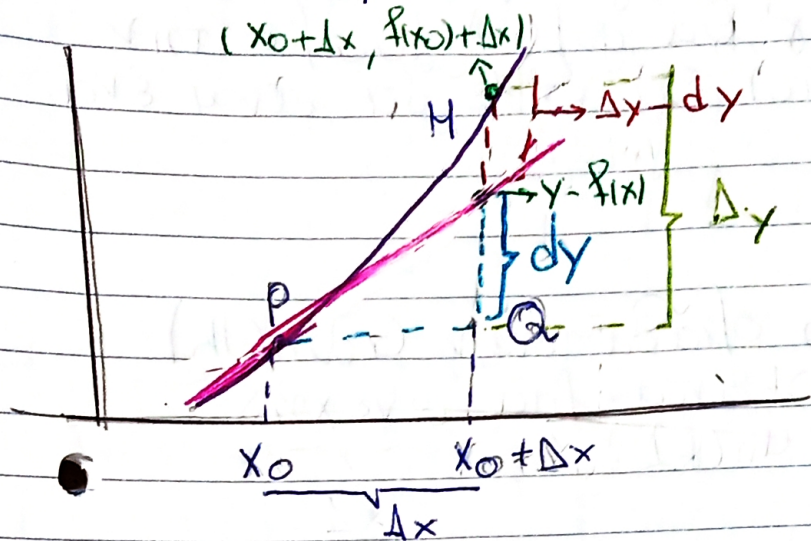 (x₀+Δx, f(x₀)+Δx)
Δy-dy
M
y-f(x)
Δy
dy
P
Q
x₀
x₀+Δx
Δx